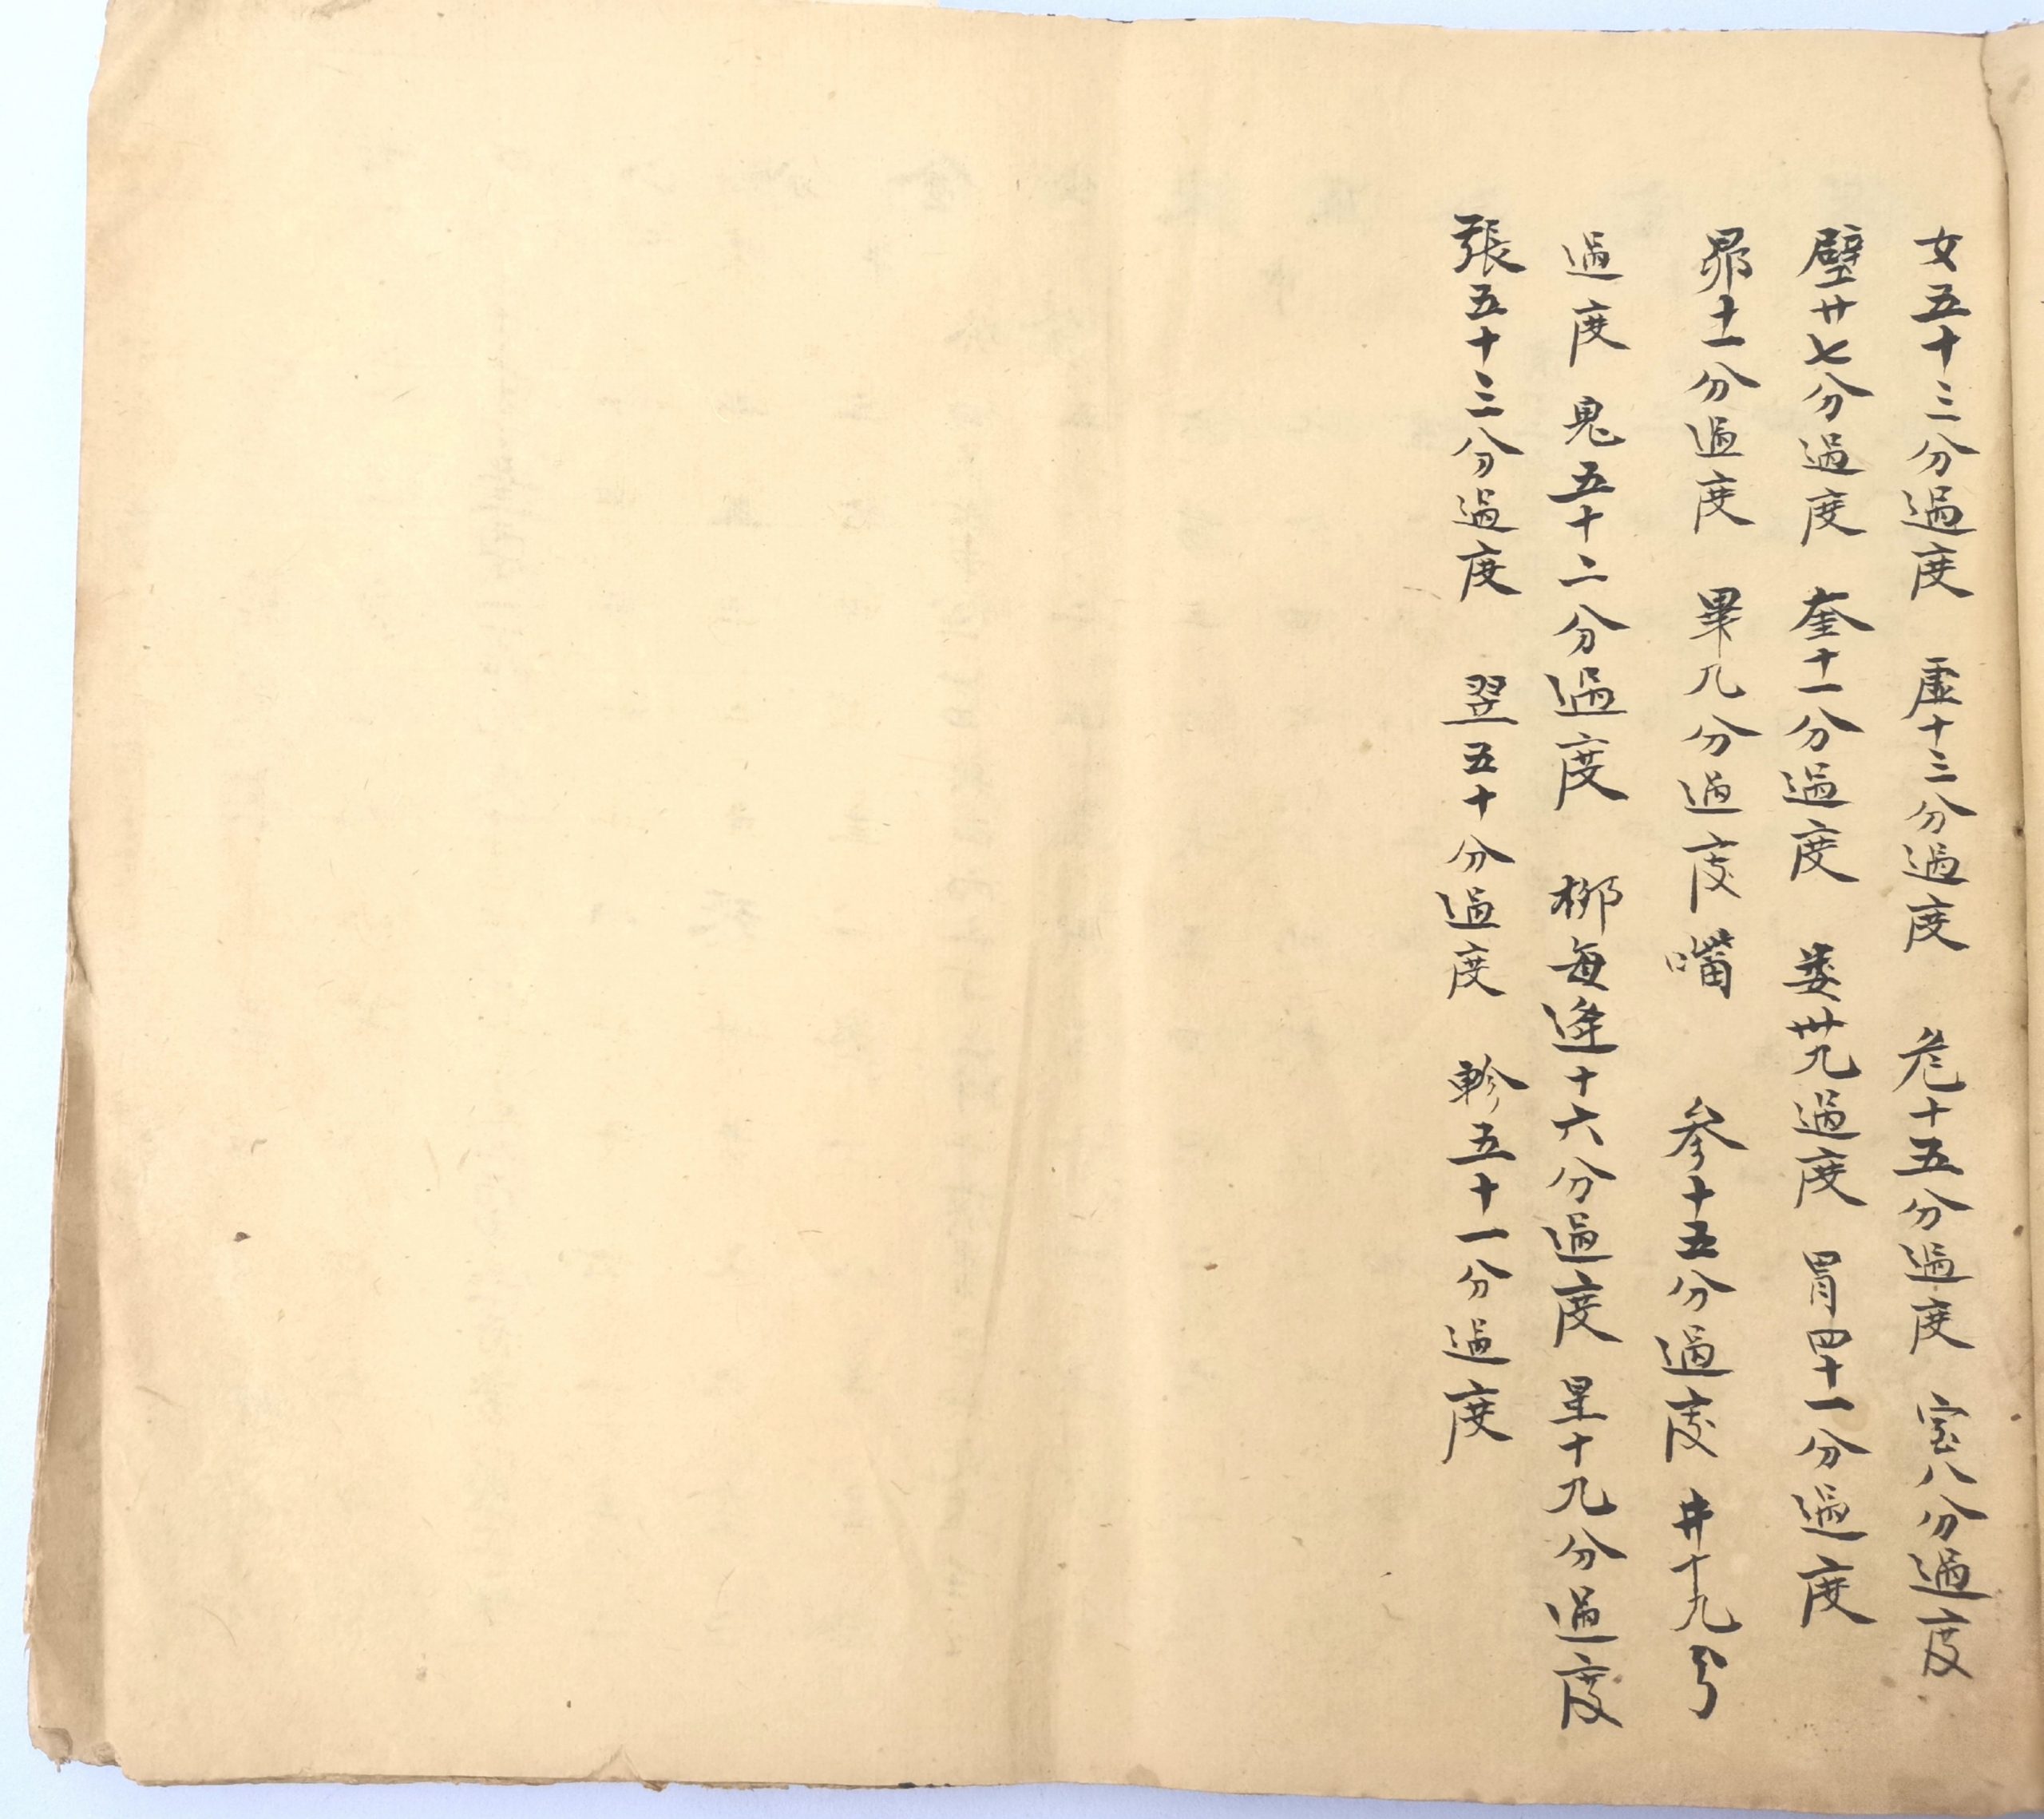 女五十三分過度　虛十三分過度　危十五分過度　室八分過度
壁廿七分過度　奎十一分過度　婁廿九過度　胃四十一分過度
昴十一分過度　畢九分過度　嘴　參十五分過度　井十九分
過度　鬼五十二分過度　柳每逢十六分過度　星十九分過度
張五十三分過度　翌五十分過度　軫五十一分過度